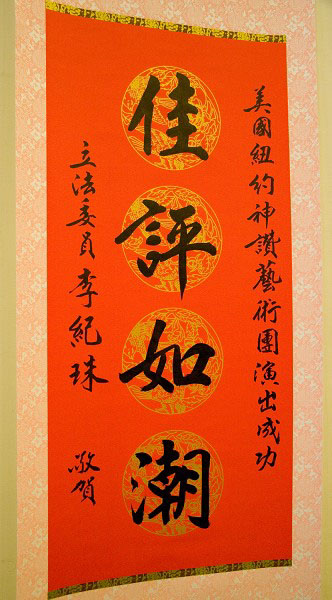 美國紐約神讚藝術團演出成功
佳評如潮
立法委員李紀珠 敬賀